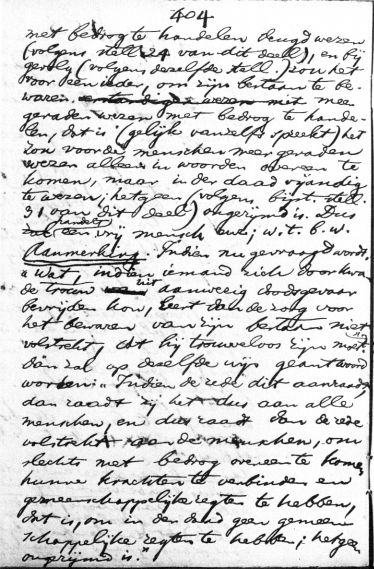 404
met bedrog te handelen deugd wezen
(volgens stell. 24 van dit deel), en bij
gevolg (volgens dezelfde stell.) zou het
voor een ieder, om zijn bestaan te be-
waren, mee
geraden wezen met bedrog te hande-
len, dat is (gelijk vanzelf spreekt) het
zou voor de menschen meer geraden
wezen alleen in woorden overeen te
komen, maar in der daad vijandig
te wezen; hetgeen (volgens bijst. stell.
31 van dit deel) ongerijmd is. Dus
handelt
een vrij mensch enz; w.t.b.w.
Aanmerking. Indien nu gevraagd wordt,
"Wat, indien iemand zich door kwa
de trouw uit aanwezig doodsgevaar
bevrijden kon, leert dan de zorg voor
het bewaren van zijn bestaan niet
volstrekt, dat hij trouweloos zijn moet"
dan zal op dezelfde wijs geantwoord
worden: "Indien de rede dit aanraadt,
dan raadt zij het dus aan alle
menschen, en dus raadt dan de rede
volstrekt aan de menschen, om
slechts met bedrog overeen te komen
hunne krachten te verbinden en
gemeenschappelijke regten te hebben,
dat is, om in der daad geen gemeen
schappelijke regten te hebben; hetgeen
ongerijmd is."